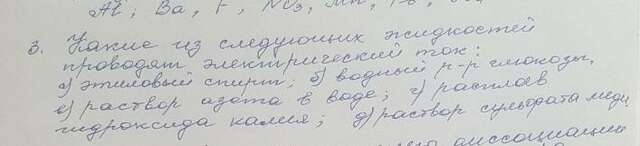 Al, Ba, F, NO₃, Mn,
3. Какие из следующих жидкостей
проводят электрический ток:
а) этиловый спирт; б) водный р-р глюкозы,
в) раствор азота в воде; г) расплав
гидроксида калия; д) раствор сульфата меди
диссоциации